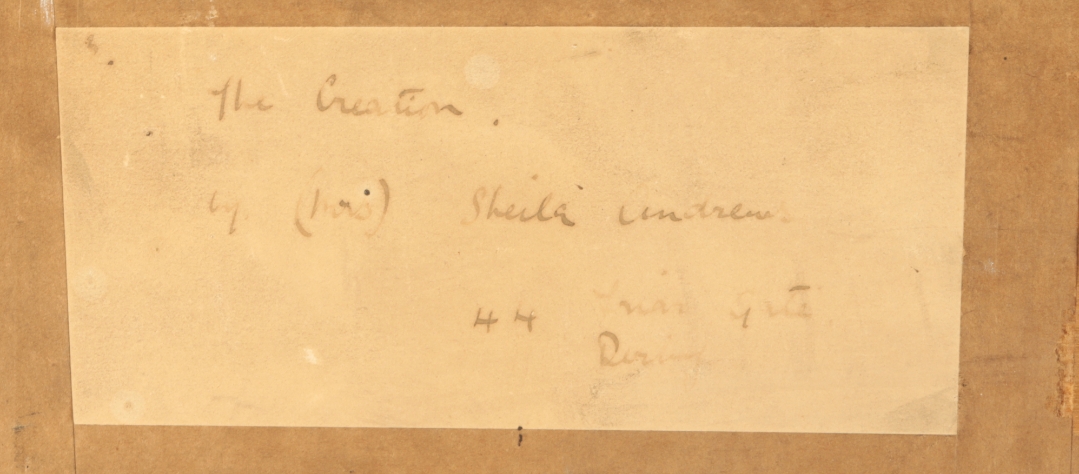 The Creation.
by (Mrs) Sheila Andrews
44 Friar Gate